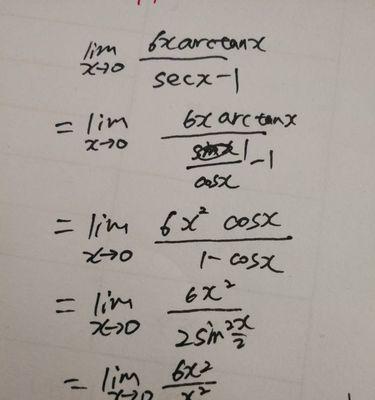 lim x→0 6x arctan x / (sec x - 1)
= lim x→0 6x arctan x / (1/cos x - 1)
= lim x→0 6x² cos x / (1 - cos x)
= lim x→0 6x² / (2 sin² x/2)
= lim x→0 6x² / x²